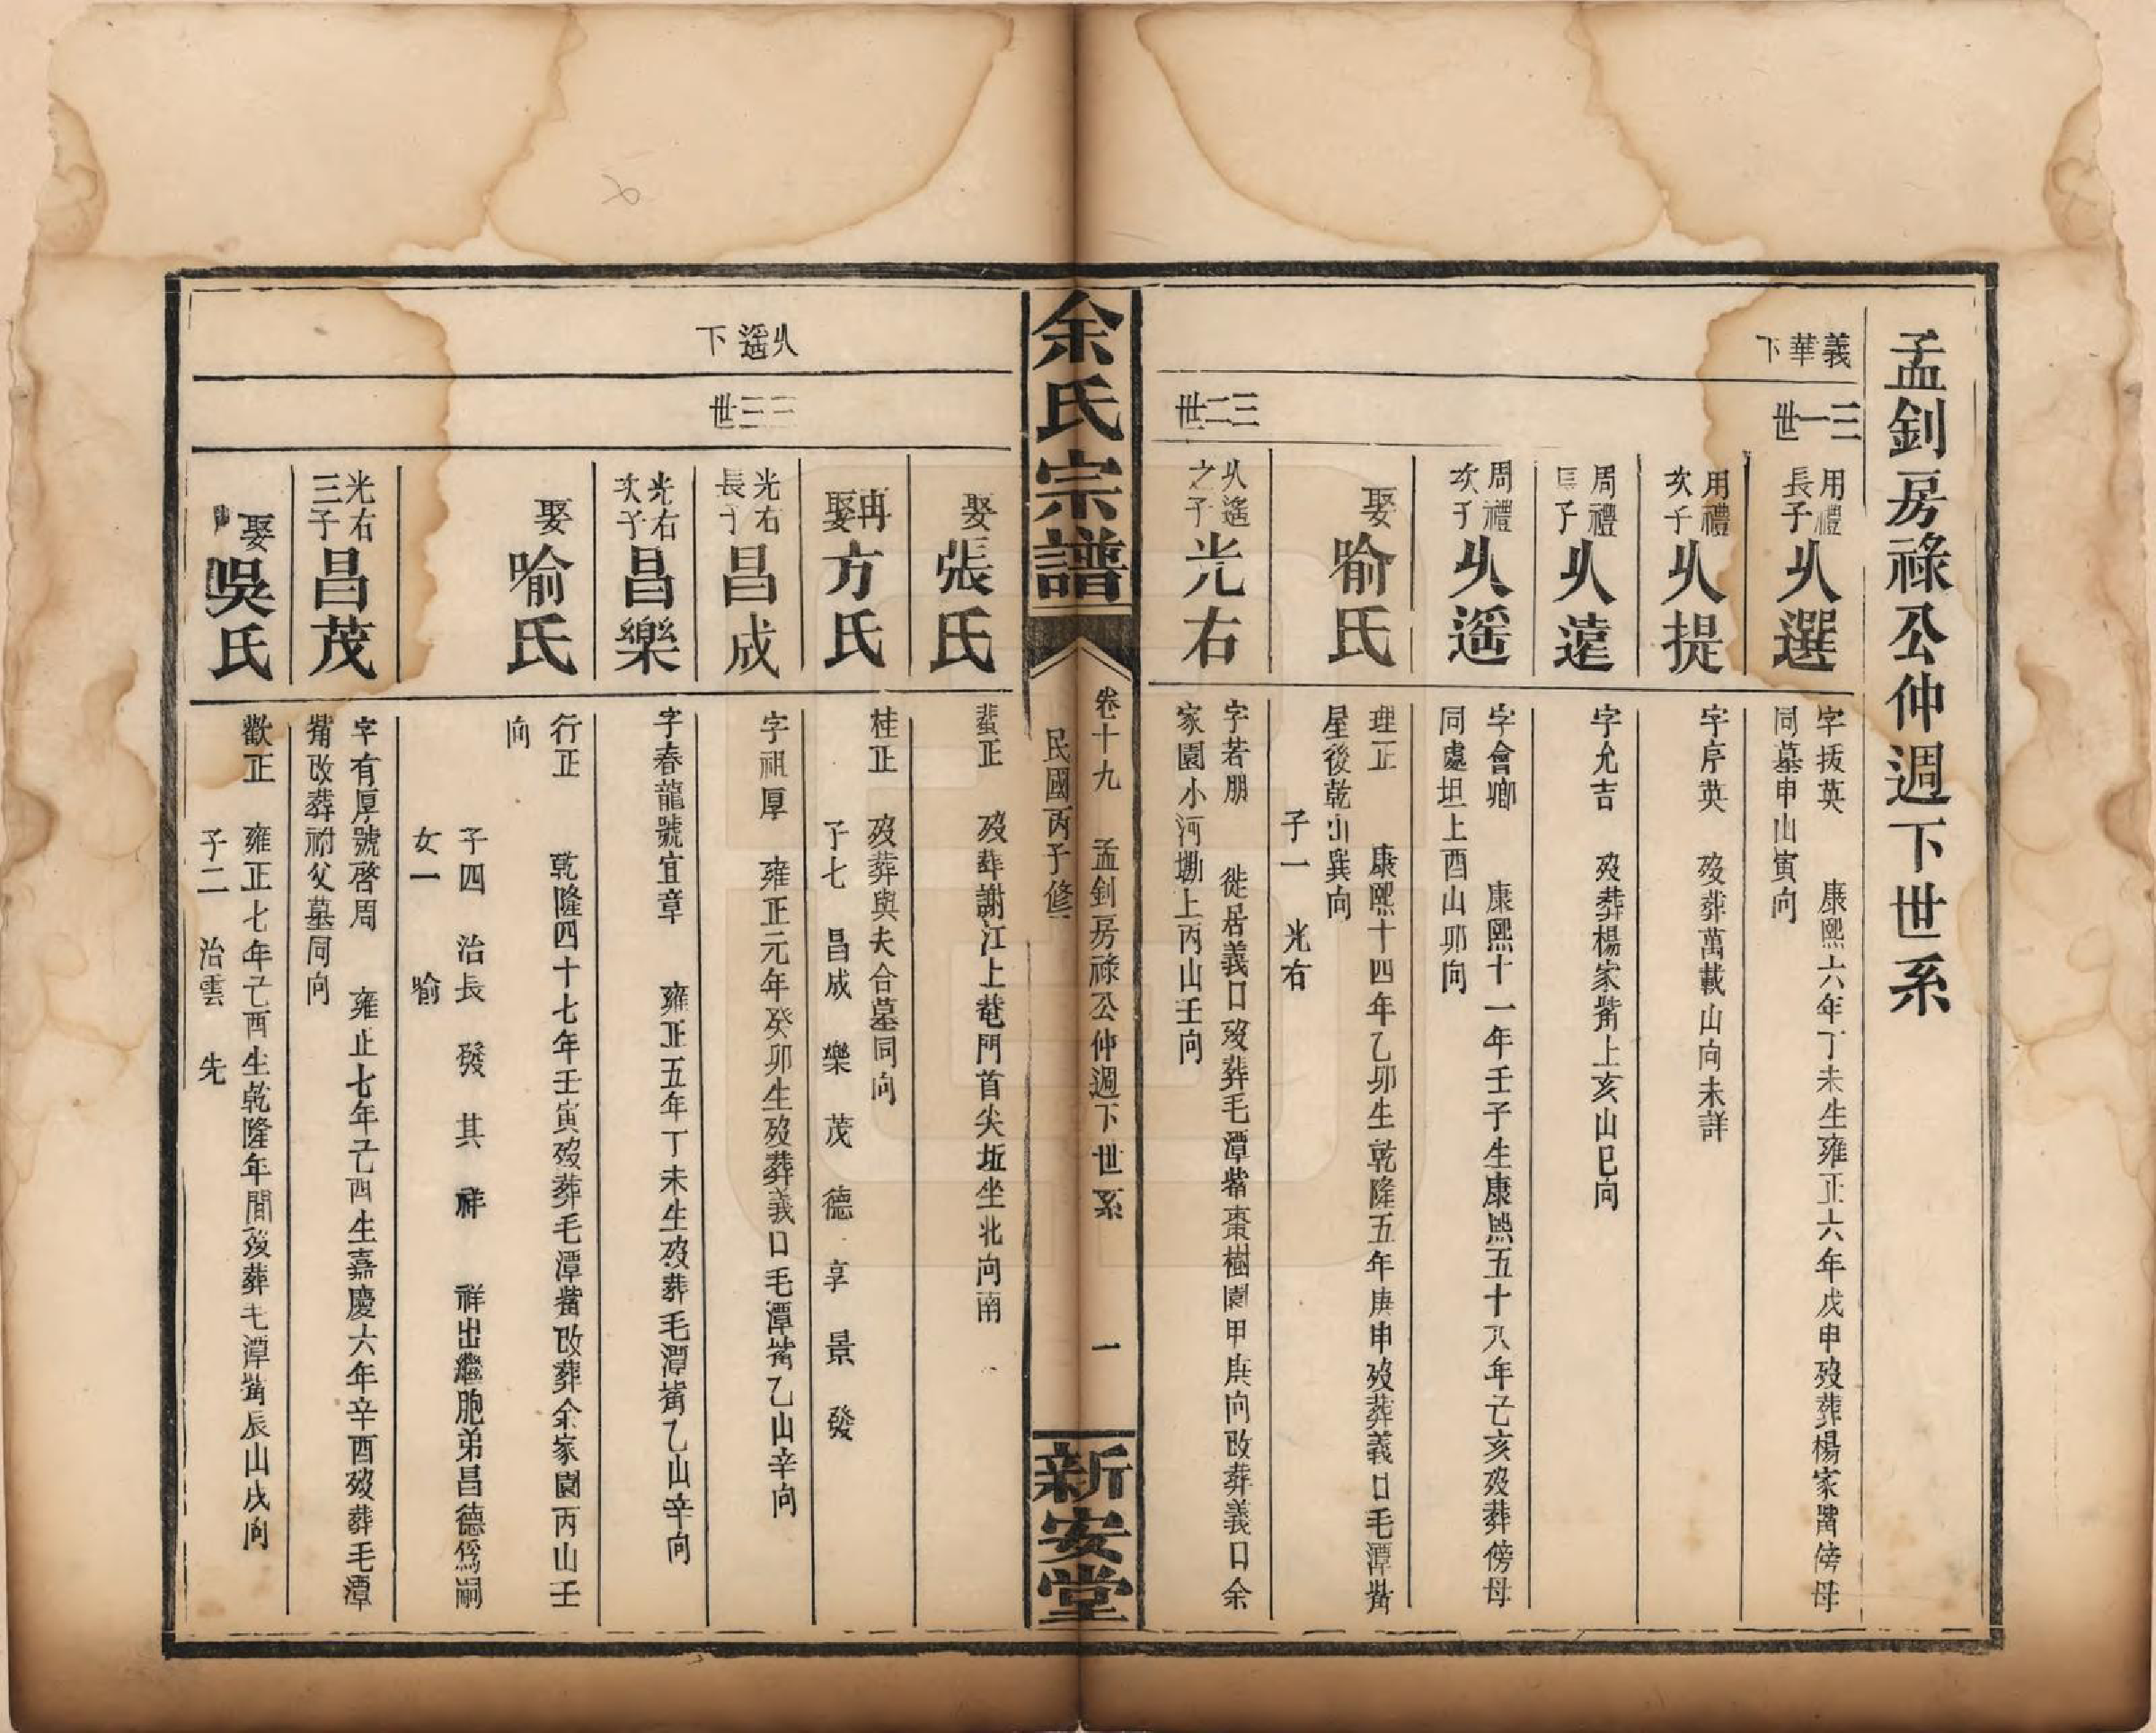 孟釗房祿公仲週下世系
義華下
三一世
用禮長子
㕥選
字拔英 康熙六年丁未生雍正六年戊申歿葬楊家嘴傍母
同墓申山寅向
用禮次子
㕥提
字序英 歿葬萬載山向未詳
周禮長子
㕥遠
字允吉 歿葬楊家嘴上亥山巳向
周禮次子
㕥遙
字會鄉 康熙十一年壬子生康熙五十八年己亥歿葬傍母
同處坦上酉山卯向
娶
喻氏
理正 康熙十四年乙卯生乾隆五年庚申歿葬義口毛潭嘴
屋後乾山巽向
子一 光右
三二世
㕥遙之子
光右
字若朋 徙居義口歿葬毛潭嘴棗樹園甲庚向改葬義口余
家園小河塝上丙山壬向
余氏宗譜
卷十九 孟釗房祿公仲週下世系 一
民國丙子修
新安堂
娶
張氏
蜚正 歿葬謝江上菴門首尖坵坐北向南
再娶
方氏
桂正 歿葬與夫合墓同向
子七 昌成 樂 茂 德 享 景 發
㕥遙下
三三世
光右長子
昌成
字祖厚 雍正元年癸卯生歿葬義口毛潭嘴乙山辛向
光右次子
昌樂
字春龍號宜章 雍正五年丁未生歿葬毛潭嘴乙山辛向
娶
喻氏
行正 乾隆四十七年壬寅歿葬毛潭嘴改葬余家園丙山壬
向
子四 治長 發 其 祥 祥出繼胞弟昌德爲嗣
女一 喻
光右三子
昌茂
字有厚號啓周 雍正七年己酉生嘉慶六年辛酉歿葬毛潭
嘴改葬祔父墓同向
娶
吳氏
歡正 雍正七年己酉生乾隆年間歿葬毛潭嘴辰山戌向
子二 治雲 先